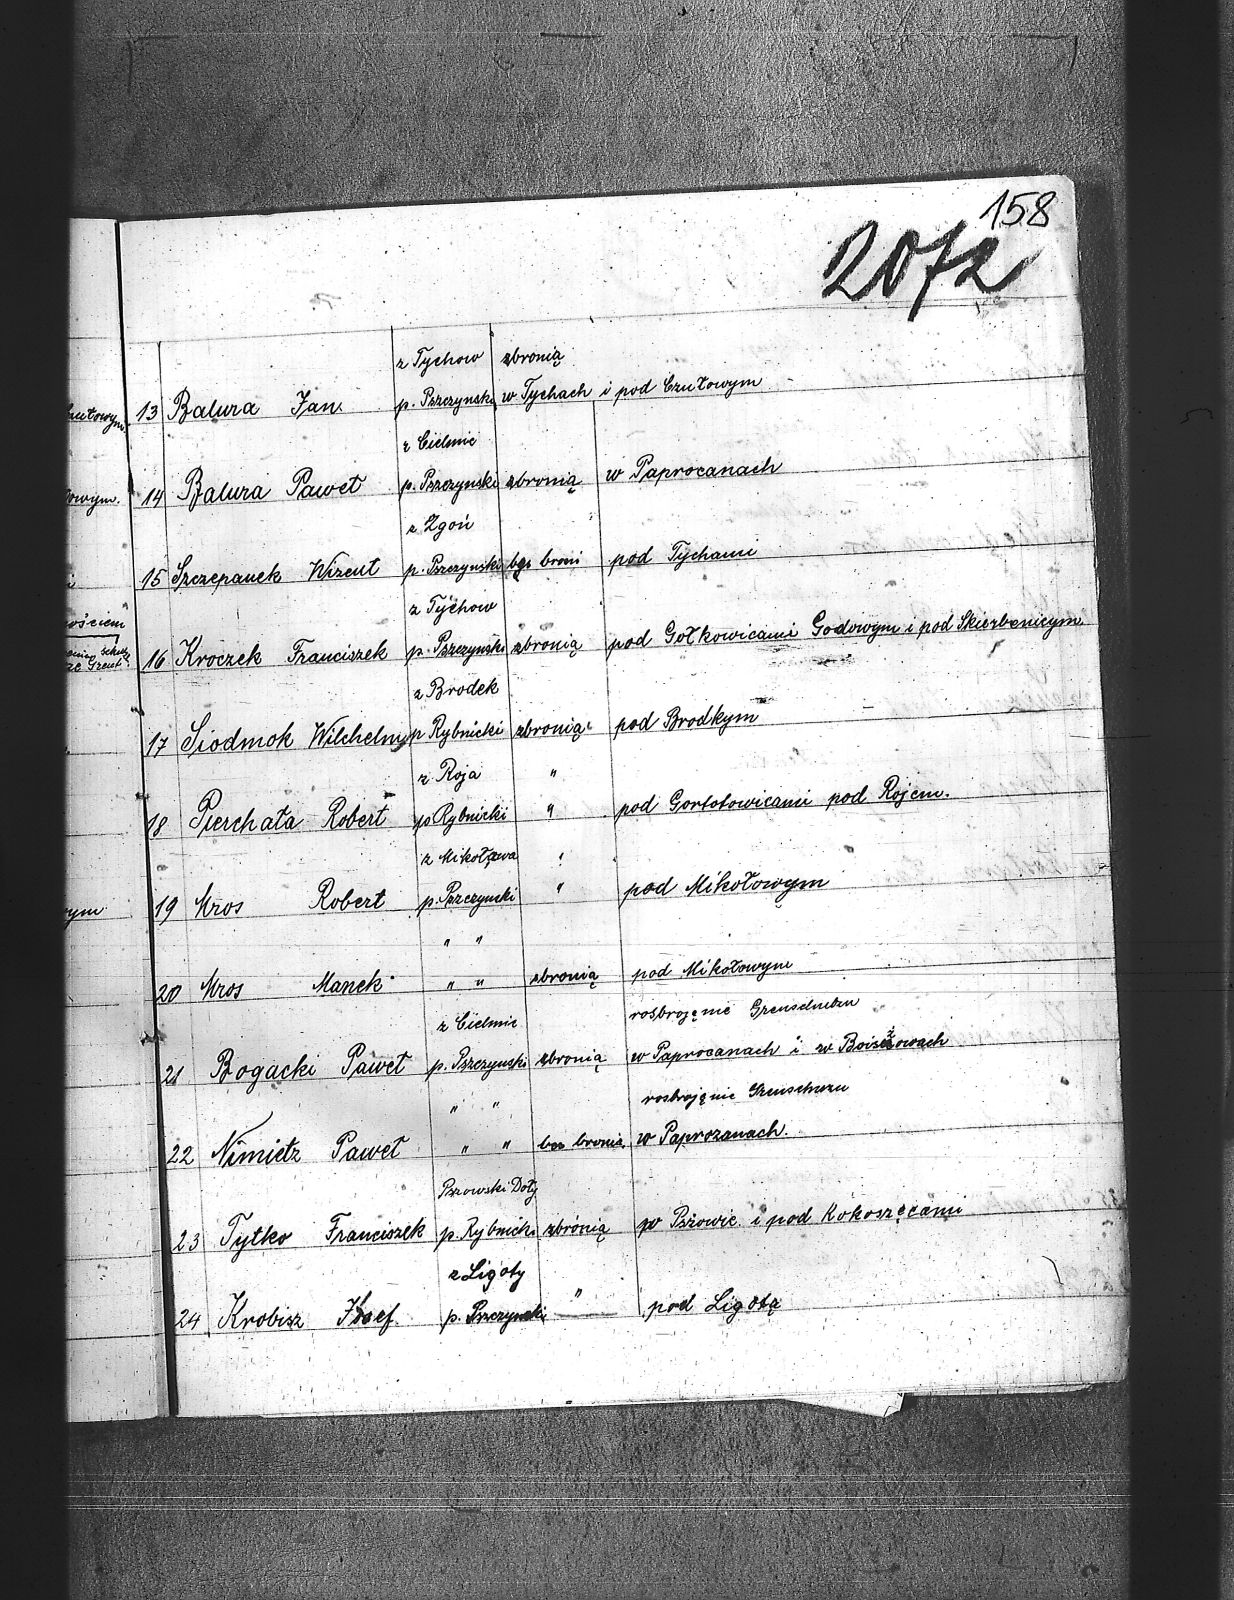 158
2072
z Tychow zbronią
13 Balura Jan p. Pszczynski w Tychach i pod Czułowym
z Cielmic
14 Balura Paweł p. Pszczynski zbronią w Paprocanach
z Zgoń
15 Szczepanek Wizent p. Pszczynski bez broni pod Tychami
z Tychow
16 Kroczek Franciszek p. Pszczynski zbronią pod Gołkowicami Godowym i pod Skierbenicym
z Brodek
17 Siodmok Wilchelm p Rybnicki zbronią pod Brodkym
z Roja "
18 Pierchała Robert p Rybnicki " pod Gortotowicami pod Rojem.
z Mikołowa "
19 Mros Robert p. Pszczynski " pod Mikołowym
" "
20 Mros Manek " " zbronią pod Mikołowym
z Cielmic rosbrojęnie Grenschuzu
21 Bogacki Paweł p. Pszczynski zbronią w Paprocanach i w Boiszowach
" " rosbrojęnie Grenschuzu
22 Nimietz Paweł " " bez bronia w Paprozanach.
Pszowski Doły
23 Tytko Franciszek p. Rybnicki zbronią w Pszowie i pod Kokoszęcami
z Ligoty
24 Krobisz Josef. p. Pszczynski " pod Ligotą